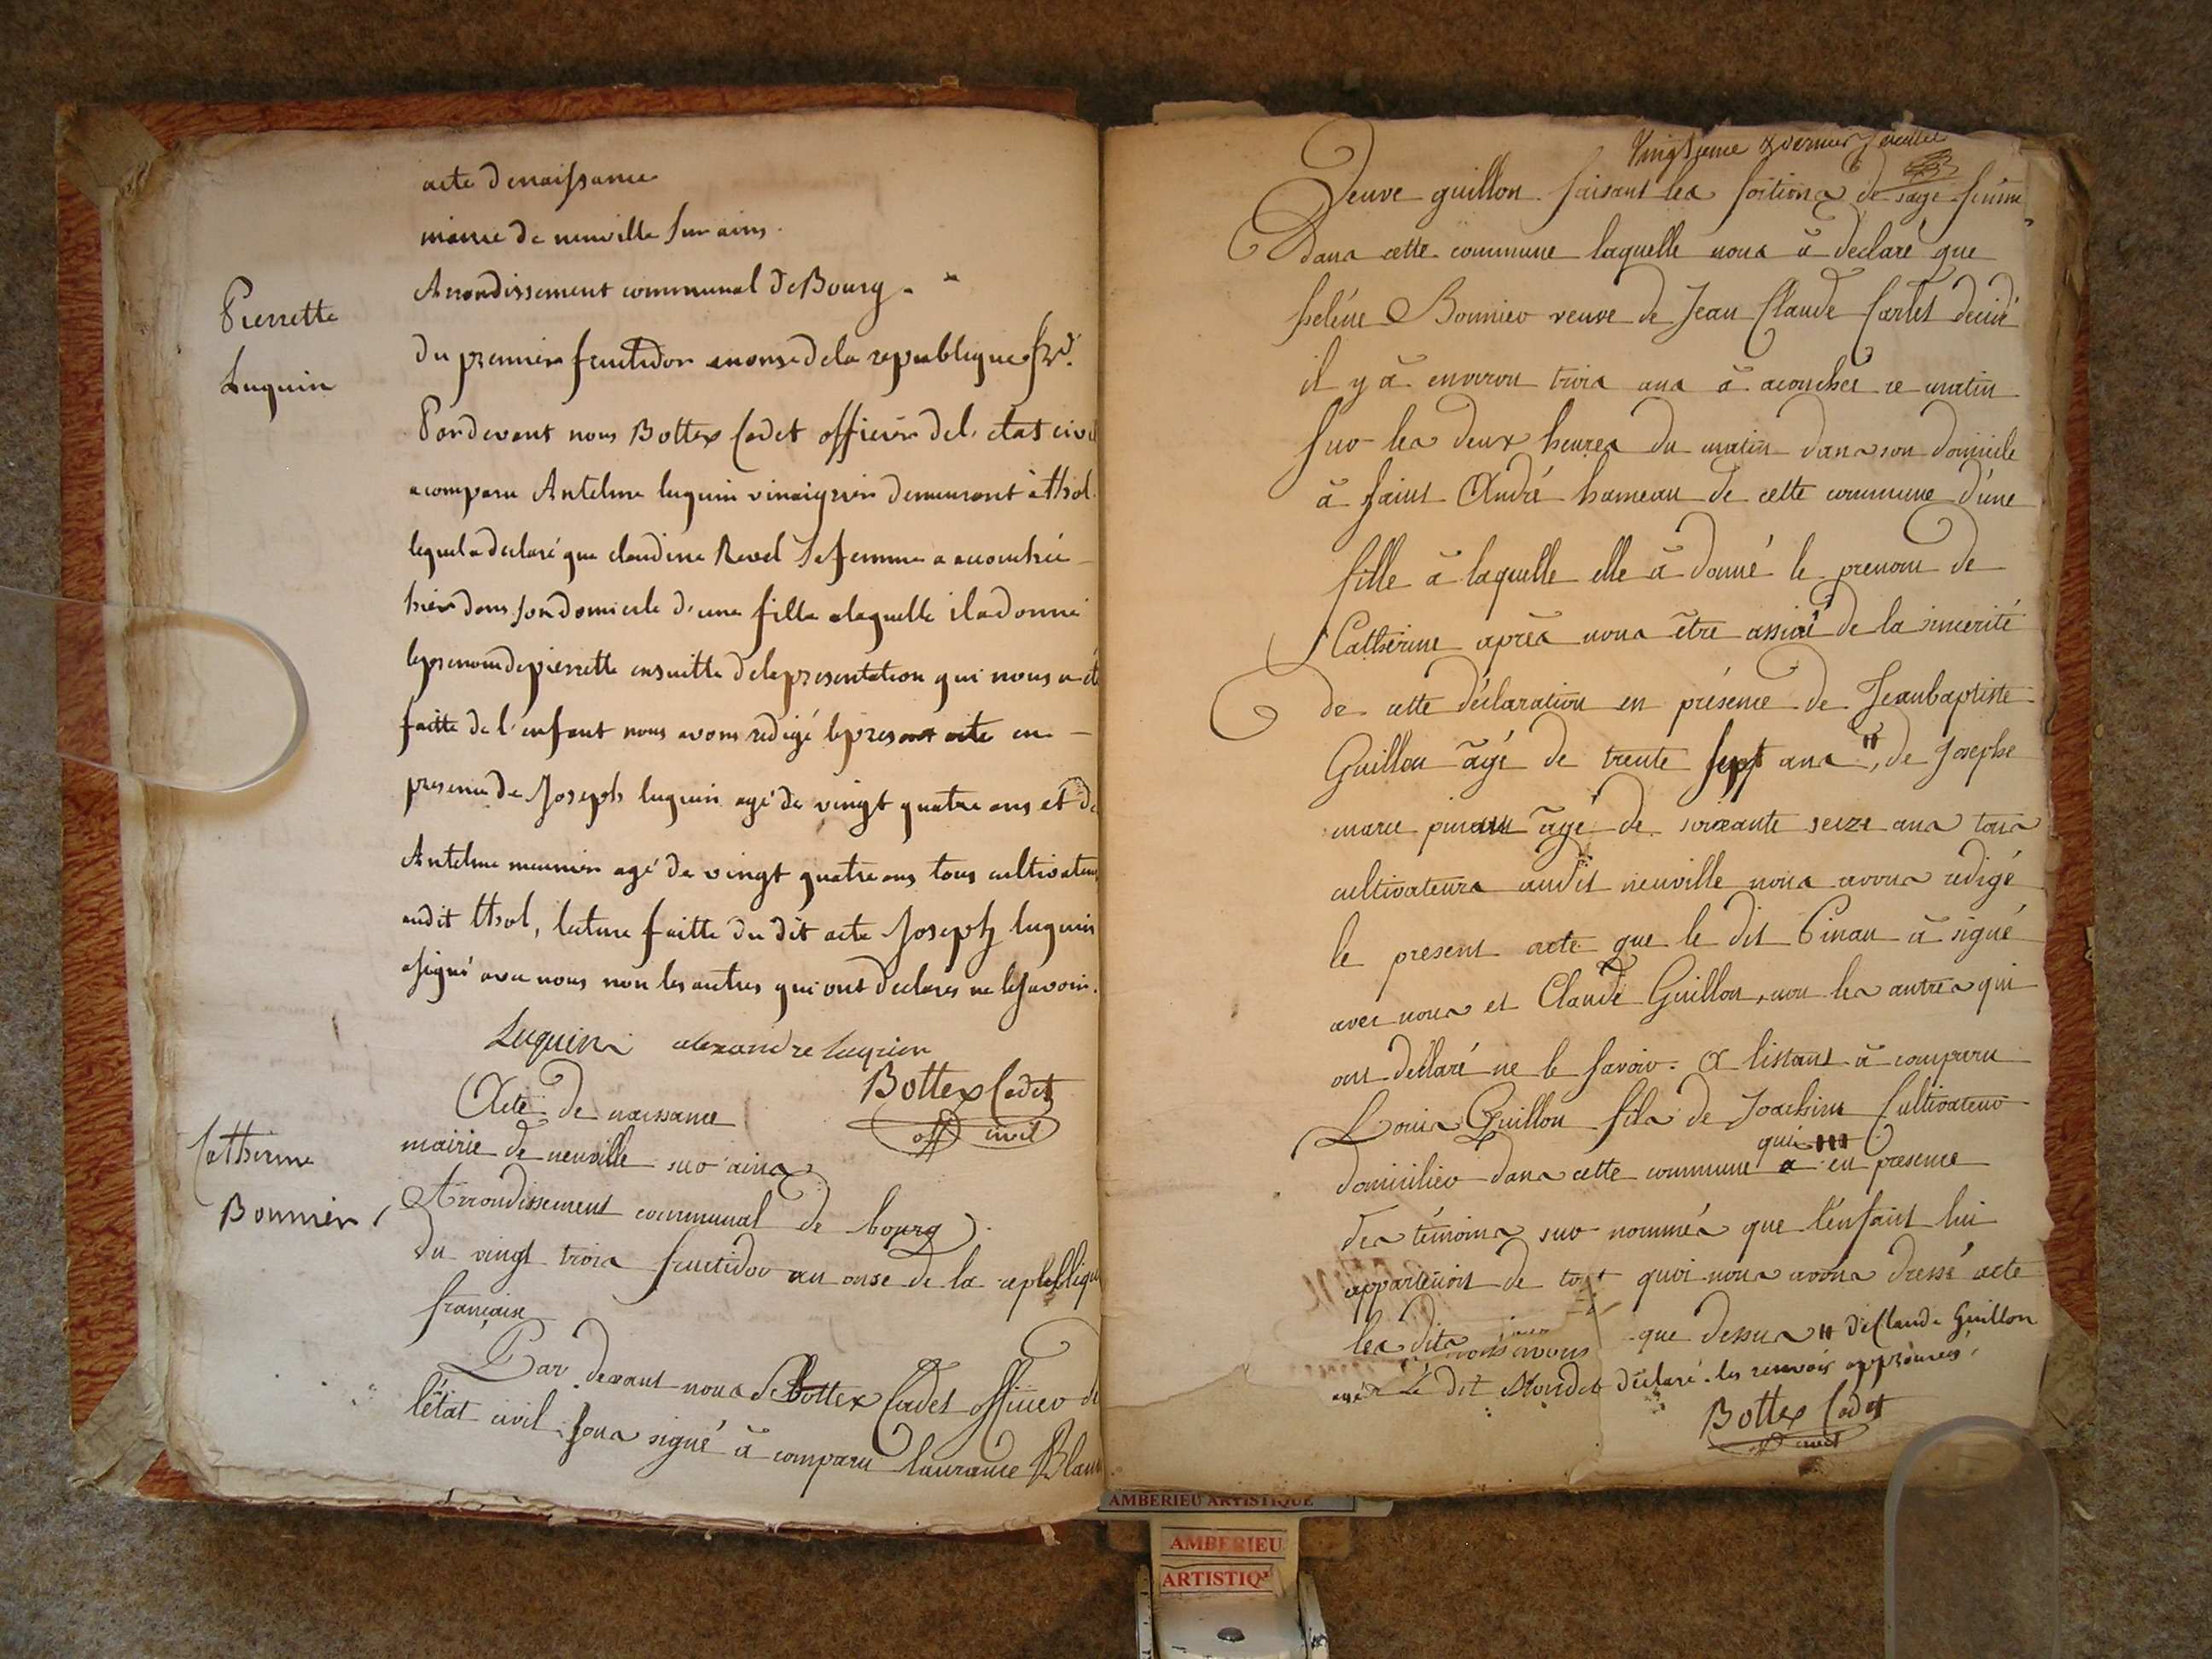 acte de naissance
mairie de neuville sur ains.
Arrondissement communal De Bourg.
Pierrette
Luquin
Du premier fructidor an onse de la republique fr.se
Pardevant nous Bottex Cadet officier de l'état civil
a comparu Antelme luquin vinaigrier demeurant à thol
lequel a declaré que claudine Revel sa femme a accouchée
hier dans son domicile d'une fille a laquelle il a donné
le prenom de pierrette ensuitte de la presentation qui nous a été
faitte de l'enfant nous avons redigé le present acte en
presence de Joseph luquin agé de vingt quatre ans et de
Antelme meunier agé de vingt quatre ans tous cultivateurs
audit thol, lecture faitte du dit acte Joseph luquin
a signé avec nous non les autres qui ont declarés ne le savoir.
Luquin alexandre luquin
Bottex Cadet
off civil
Catherine
Bonnier
Acte de naissance
mairie de neuville sur ains
Arrondissement communal de bourg
Du vingt trois fructidor an onse de la republique
française
Par devant nous Bottex Cadet officier de
l'état civil sous signé à comparu laurance Blanc
Vingtieme & dernier feuillet
Veuve guillon faisant les foitions de sage femme
Dans cette commune laquelle nous à declaré que
heléne Bonnier veuve de Jean Claude Carlet decidé
il y à environ trois ans à acouchée ce matin
sur les deux heures du matin dans son domicile
à saint André hameau de cette commune d'une
fille à laquelle elle à donné le prenom de
Catherine aprés nous être assuré de la sincerité
de cette déclaration en présence de Jeanbaptiste
Guillon âgé de trente sept ans #, de Josephe
marie âgé de soixante seize ans tous
cultivateurs audit neuville nous avons redigé
le present acte que le dit Pinau à signé
avec nous et Claude Guillon, non les autres qui
ont déclaré ne le savoir. A listant à comparu
Louis Guillon fils de Joachim Cultivateur
qui
domicilier dans cette commune a en presence
des témoins sur nommés que l'enfant lui
appartenoit de tout quoi nous avons dressé acte
les dits jour que dessus # de Claude Guillon
le dit declaré. les renvois approuvés
Bottex Cadet
off civil
AMBERIEU ARTISTIQUE
AMBERIEU
ARTISTIQ